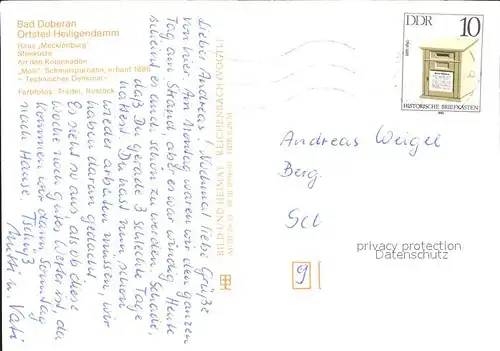 Bad Doberan
Ortsteil Heiligendamm
Haus „Mecklenburg"
Steilküste
An den Kolonnaden
„Molli", Schmalspurbahn, erbaut 1886
– Technisches Denkmal –
Farbfotos: Rostock
Lieber Andreas! Nochmal liebe Grüße
von hier. Am Montag waren wir den ganzen
Tag am Strand, aber es war windig. Heute
scheint es auch schön zu werden. Schade,
daß Du gerade 3 schlechte Tage
hattest. Du hast nun schon
wieder arbeiten müssen, wir
haben daran gedacht.
Es sieht so aus als ob diese
Woche noch gutes Wetter ist, da
kommen wir dann Sonntag
nach Hause. Tschüß
Mutti u. Vati
BILD UND HEIMAT REICHENBACH (VOGTL)
DDR 10
HISTORISCHE BRIEFKÄSTEN
Andreas Weigel
Berg.
Scl
privacy protection
Datenschutz
9